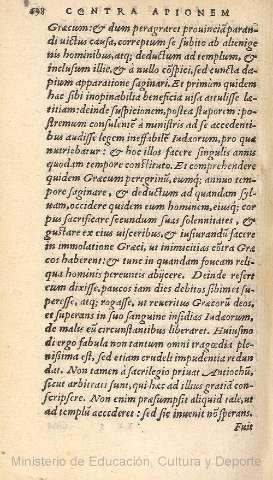 698 CONTRA APIONEM
Græcum: & dum peragraret prouinciã paran
di victus causa, correptum se subito ab alienige
nis hominibus, atq; deductum ad templum, &
inclusum illic, & à nullo cõspici, sed cuncta da
pium apparatione saginari. Et primùm quidem
hæc sibi inopinabilia beneficia visa attulisse læ
titiam: deinde suspicionem, postea stuporem: po-
stremum consulentẽ à ministris ad se accedenti
bus audisse legem ineffabilẽ Iudæorum, pro qua
nutriebatur: & hoc illos facere singulis annis
quodam tempore constituto. Et comprehendere
quidem Græcum peregrinũ, eumq; annuo tem-
pore saginare, & deductum ad quandam syl-
uam, occidere quidem eum hominem, eiusq; cor
pus sacrificare secundum suas solennitates, &
gustare ex eius visceribus, & iusiurandũ facere
in immolatione Græci, ut inimicitias cõtra Græ
cos haberent: & tunc in quandam foueam reli-
qua hominis pereuntis abijcere. Deinde refert
eum dixisse, paucos iam dies debitos sibimet su-
peresse, atq; rogasse, ut reueritus Græcorũ deos,
et superans in suo sanguine insidias Iudæorum,
de malis eũ circumstantibus liberaret. Huiusmo
di ergo fabula non tantum omni tragœdia ple-
nissima est, sed etiam crudeli impudentia redun
dat. Non tamen à sacrilegio priuat Antiochũ,
sicut arbitrati sunt, qui hæc ad illius gratiã con-
scripsere. Non enim præsumpsit aliquid tale, ut
ad templũ accederet: sed sic inuenit nõ sperans.
Fuit
Ministerio de Educación, Cultura y Deporte